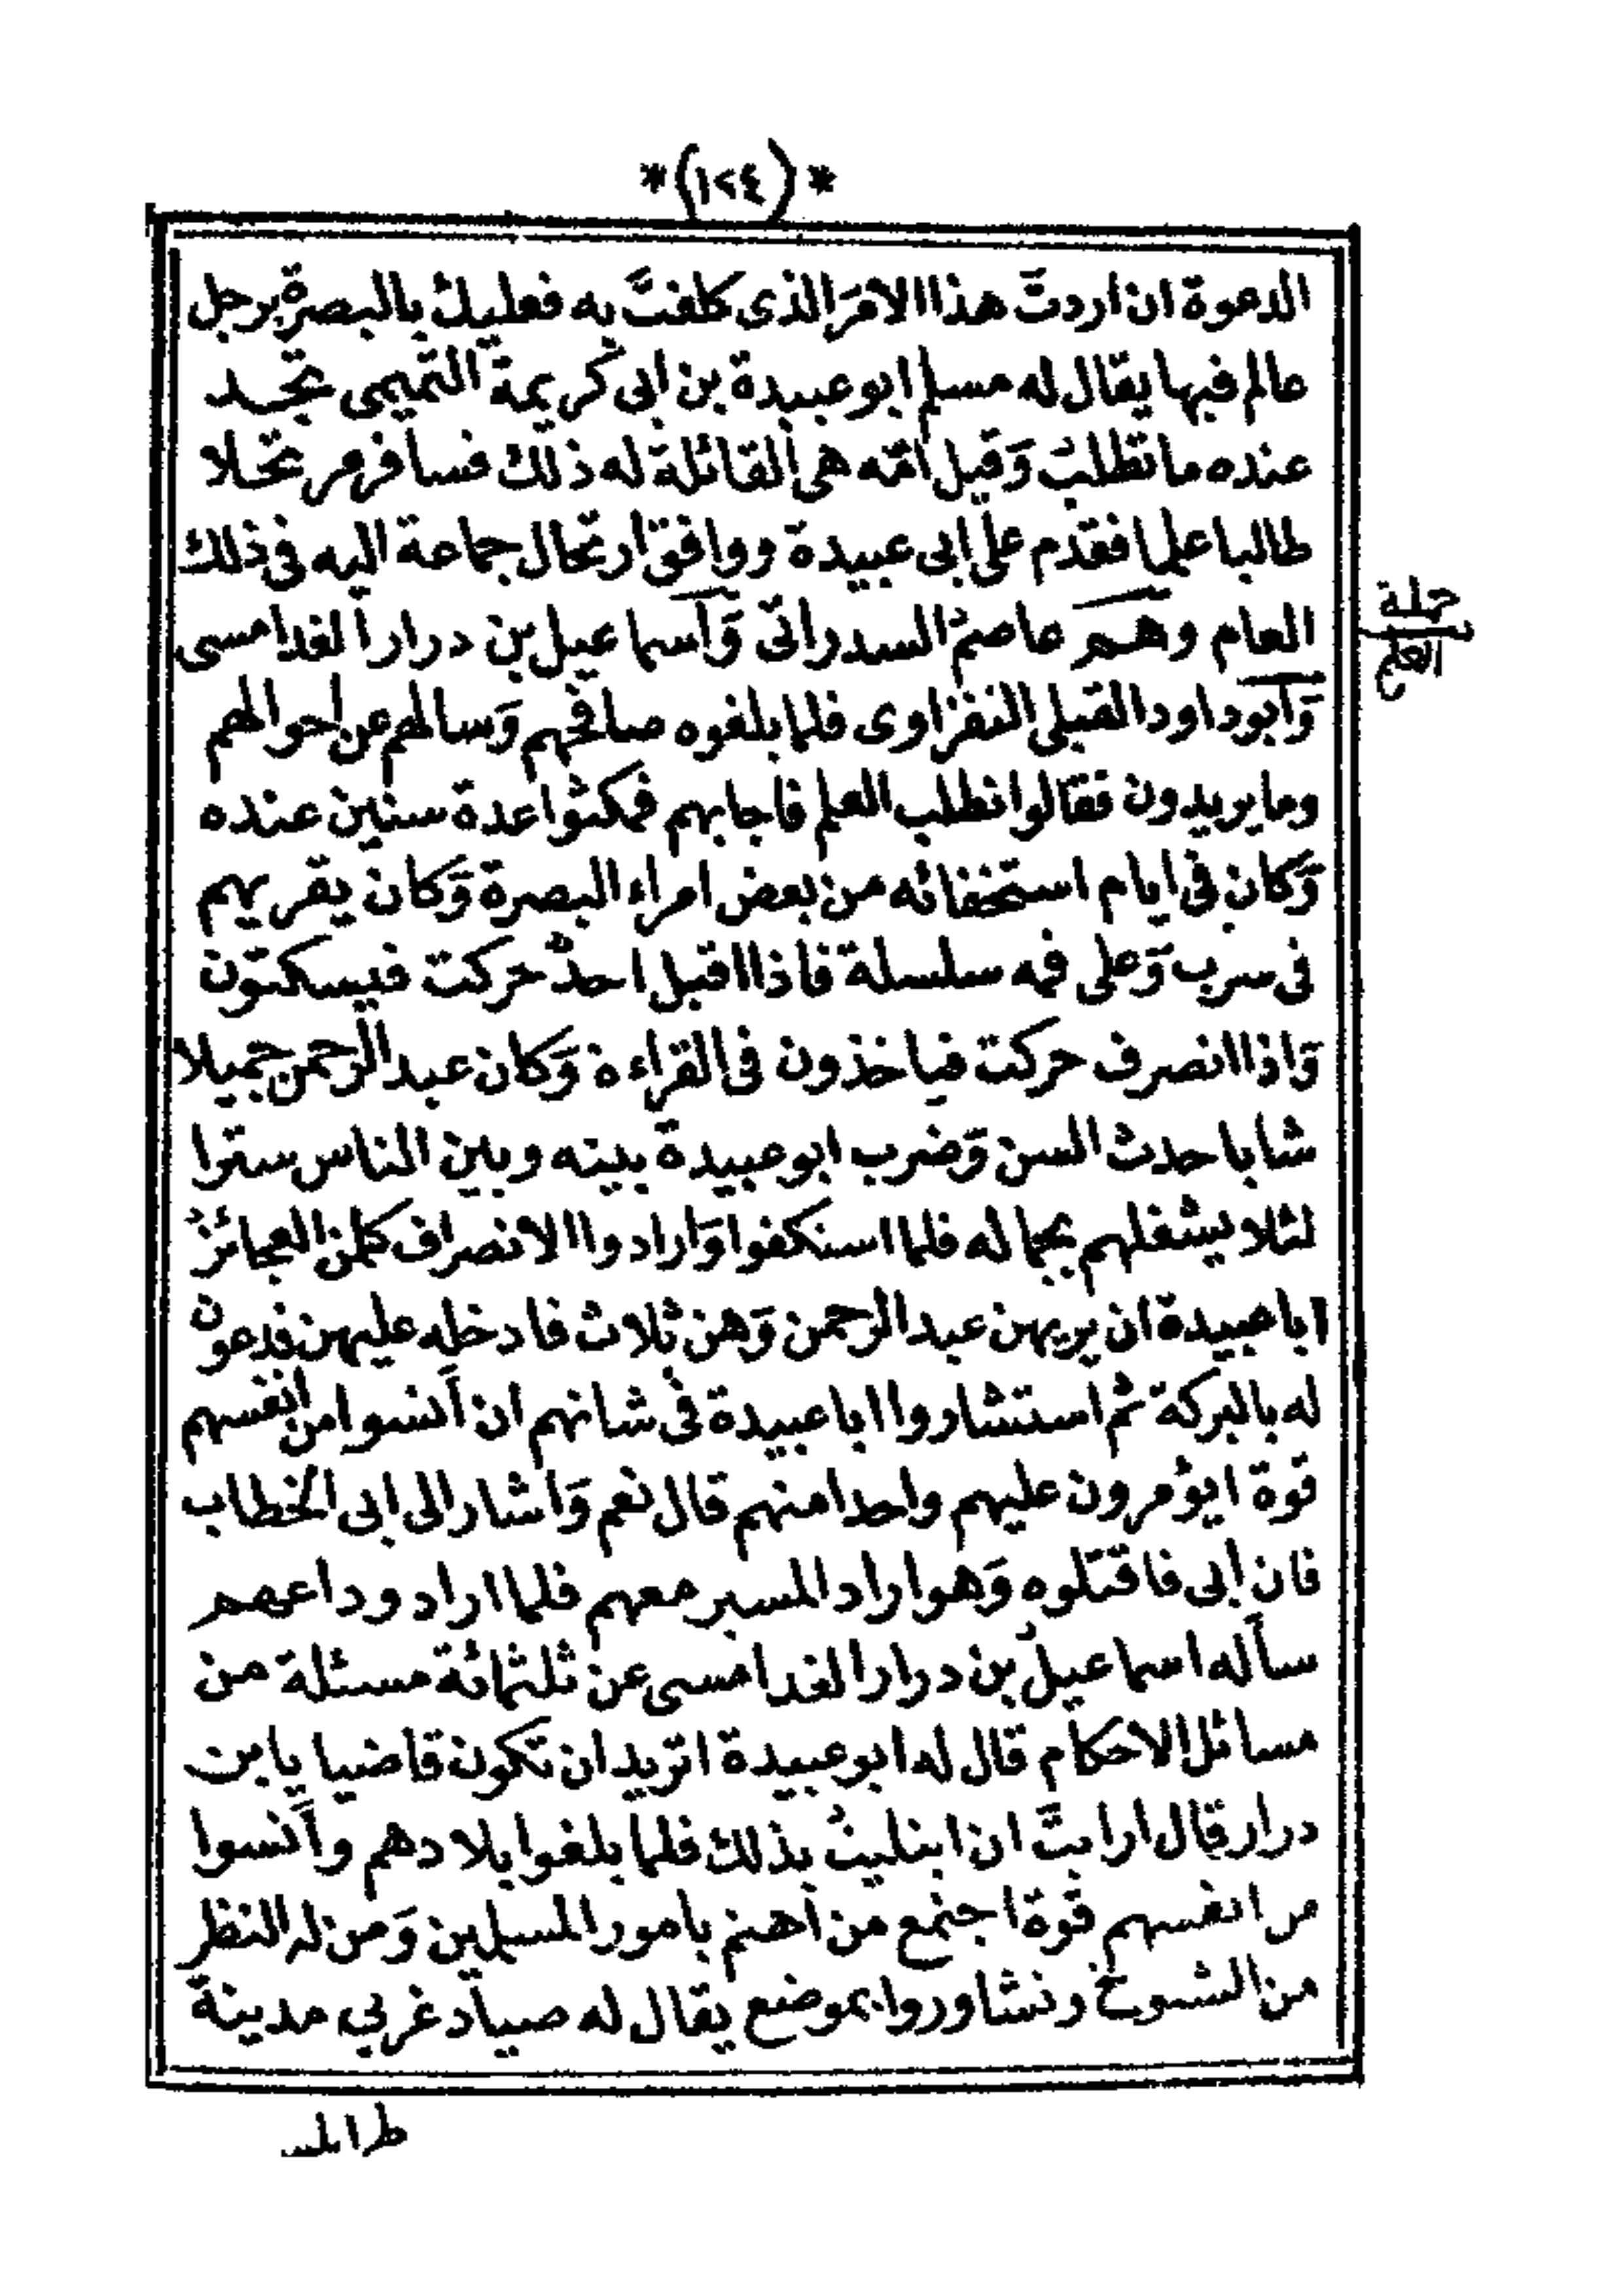 *(١٢٤)*
الدعوة ان اردتَ هذا الامَر الذى كلفتَ به فعليك بالبصرة برجل
عالم فيها يقال له مسلم ابو عبيدة بن ابى كريمة التميمى تجد
عنده ما تطلب وَقيل امّه هى القائلة له ذلك فسافر مرتحلا
طالبا علما فقدم على ابى عبيدة ووافق ارتحال جماعة اليه فى ذلك
العام وهم عاصم السدراتى وَاسماعيل بن درار الغدامسى
حملة
العلم
وَابو داود القبلى النفزاوى فلما بلغوه صافحهم وَسالهم عن احوالهم
وما يريدون فقالوا نطلب العلم فاجابهم فمكثوا عدة سنين عنده
وَكان فى ايام استخفائه من بعض امراء البصرة وَكان يقريهم
فى سرب وَعلى فمه سلسلة فاذا اقبل احدٌ حركت فيسكتون
وَاذا انصرف حركت فياخذون فى القراءة وَكان عبد الرحمن جميلا
شابا حدث السن وَضرب ابو عبيدة بينه وبين الناس سترا
لئلا يشغلهم بجماله فلما استكفوا وَارادوا الانصراف كلمن العجائزُ
ابا عبيدة ان يريهن عبد الرحمن وَهن ثلاث فادخله عليهن فدعون
له بالبركة ثم استشاروا ابا عبيدة فى شانهم ان آنسوا من انفسهم
قوة ايؤمرون عليهم واحدا منهم قال نعم وَاشار الى ابى الخطاب
فان ابى فاقتلوه وَهو اراد المسير معهم فلما اراد وداعهم
سأله اسماعيل بن درار الغدامسى عن ثلثمائة مسئلة من
مسائل الاحكام قال له ابو عبيدة اتريد ان تكون قاضيا يا بن
درار قال ارايتَ ان ابتليتُ بذلك فلما بلغوا بلادهم وآنسوا
من انفسهم قوة اجتمع من اهتم بامور المسلمين وَمن له النظر
من الشيوخ وتشاوروا بموضع يقال له صياد غربي مدينة
طرابلس